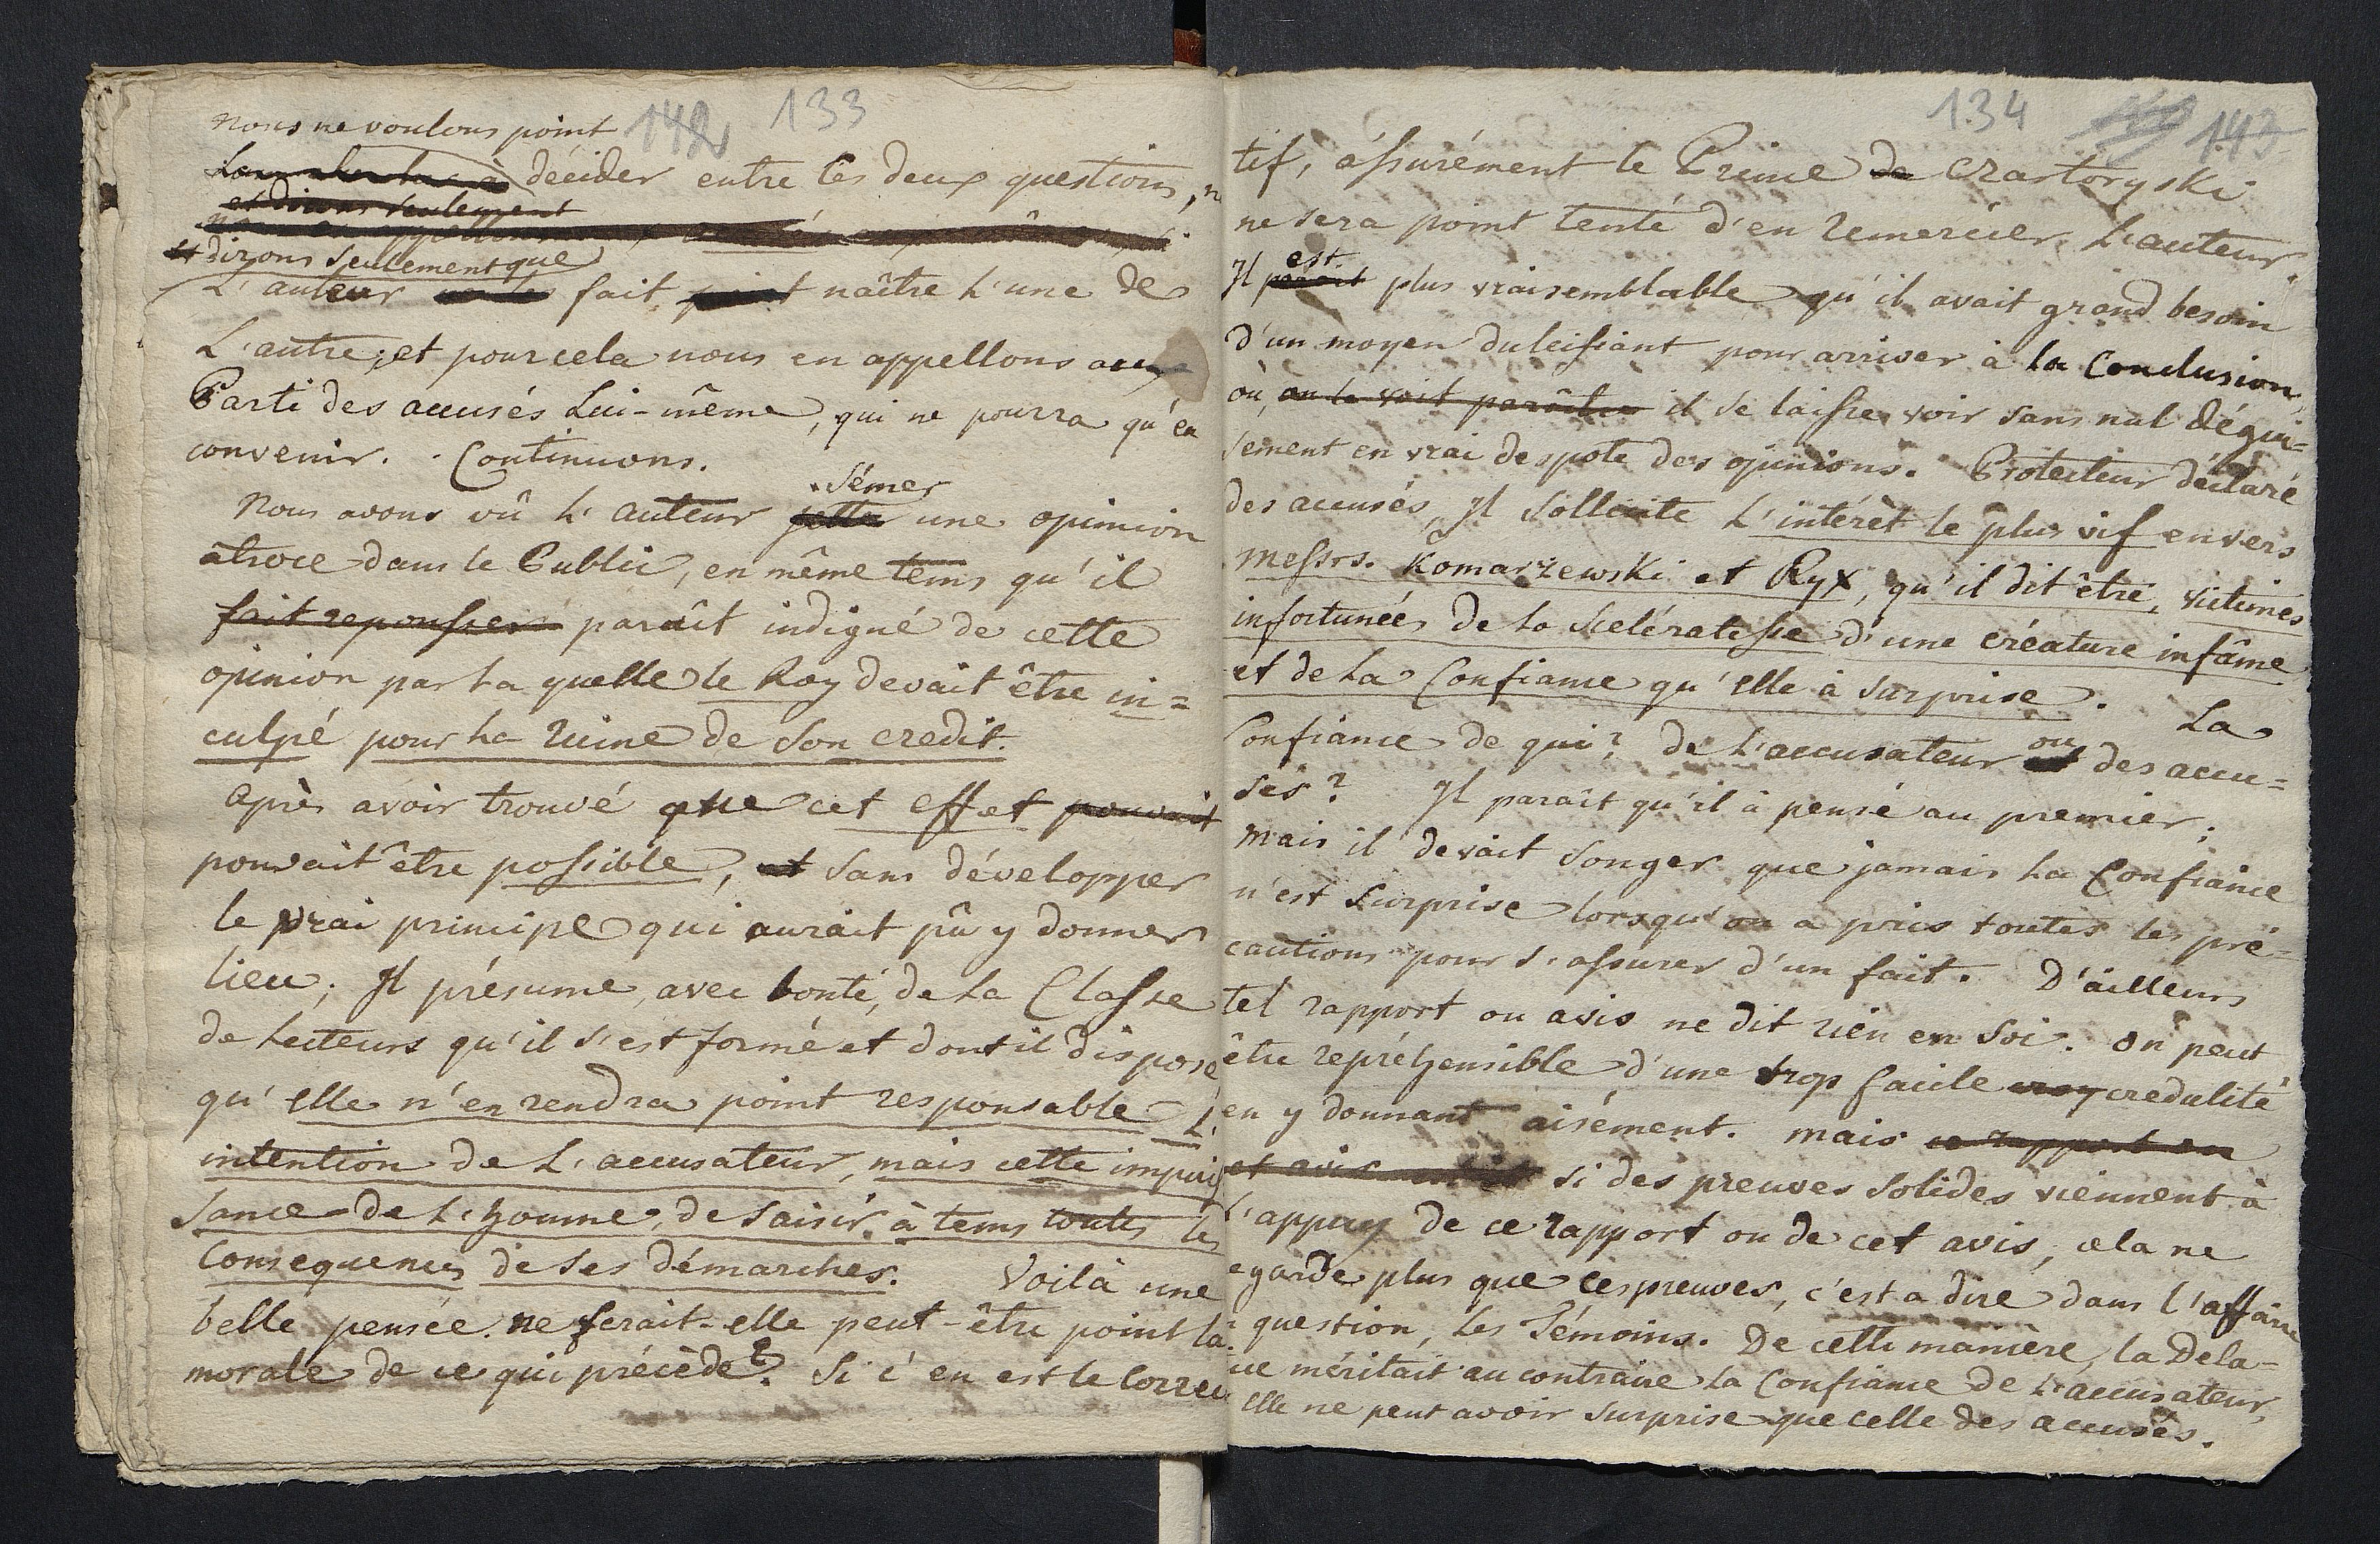 142 133
nous ne voulons point
à décider entre les deux questions,
et dirons seulement
et dirons seulement que
L'auteur fait, naître l'une de
L'autre; et pour cela nous en appellons aux
Parti des accusés Lui-même, qui ne pourra qu'en
convenir. Continuons.
sémer
Nous avons vû l'auteur jetter une opinion
atroce dans le Public, en même tems qu'il
fait repousser paraît indigné de cette
opinion par la quelle le Roy devait être in=
culpé pour la ruine de son credit.
après avoir trouvé que cet effet pouvait
pouvait être possible, et sans développer
le vrai principe qui aurait pû y donner
lieu; Il présume, avec bonté, de la Classe
de Lecteurs qu'il s'est formé et dont il dispose
qu'elle n'en rendra point responsable L'
intention de L'accusateur, mais cette impuis
sance de L'homme, de saisir à tems toutes les
consequences de ses démarches. Voilà une
belle pensée. ne serait-elle peut-être point la
morale de ce qui précède? Si c'en est le correc
134 143
tif, assurément le Prince de Czartoryski
ne sera point tenté d'en remercier L'auteur.
est
Il parait plus vraisemblable qu'il avait grand besoin
d'un moyen dulcifiant pour arriver à la Conclusion,
où, on le voit paroître il se laisse voir sans nul dégui=
sement en vrai despote des opinions. Protecteur déclaré
des accusés, Il sollicite L'intérèt le plus vif envers
Messrs. Komarzewski et Ryx, qu'il dit être, victimes
infortunées de la scelératesse d'une créature infâme
et de la Confiance qu'elle à surprise. La
Confiance de qui? de L'accusateur et des accu=
ou
sés? Il paraît qu'il à pensé au premier;
mais il devait songer que jamais la Confiance
n'est surprise lorsqu'on a pris toutes les pré-
cautions pour s'assurer d'un fait. D'ailleurs
tel rapport ou avis ne dit rien en soi. on peut
être repréhensible d'une trop facile credulité
en y donnant aisément. mais ce rapport ou
et avis si des preuves solides viennent à
l'appuy de ce rapport ou de cet avis, cela ne
egarde plus que ces preuves, c'est a dire dans l'affaire
question, les Témoins. De cette manière, la Dela-
ice méritait au contraire la Confiance de L'accusateur,
elle ne peut avoir surprise que celle des accusés.